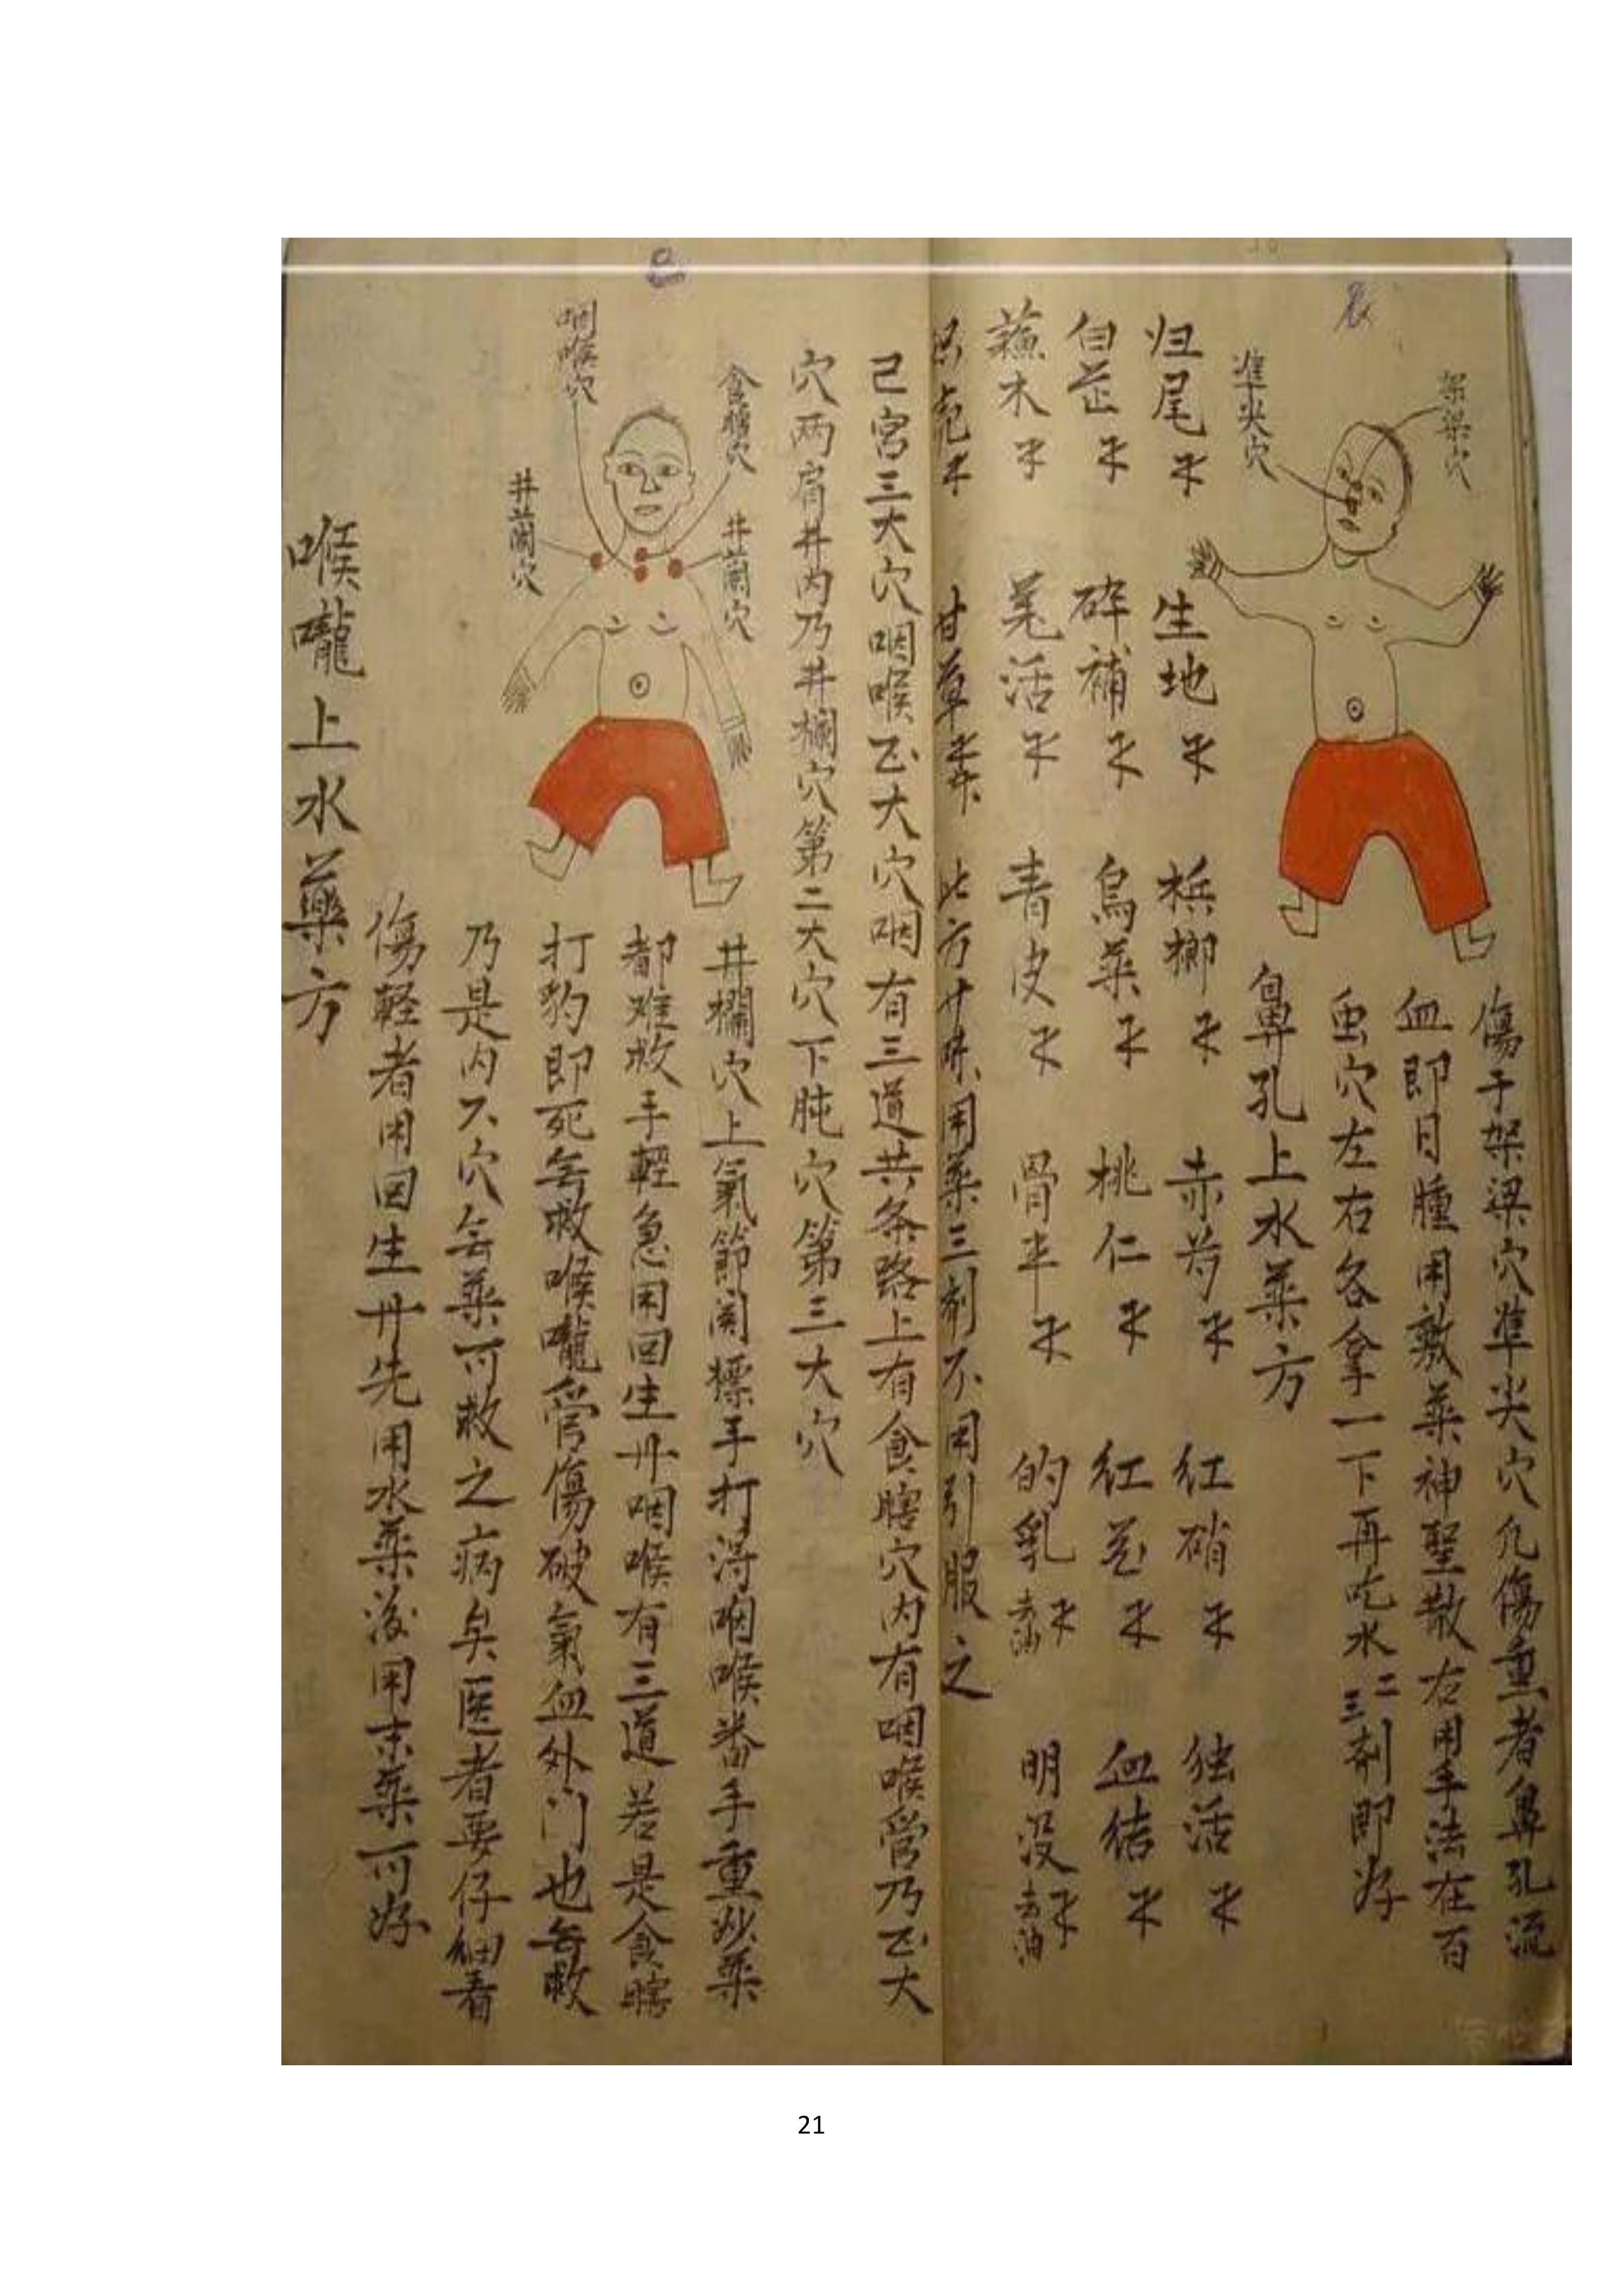 架梁穴
準尖穴
傷于架梁穴準尖穴凢傷重者鼻孔流
血即日腫用敷薬神聖散右用手法在百
虫穴左右各拿一下再吃水二三剤即好
鼻孔上水薬方
归尾 生地 梹榔 赤芍 红硝 独活
白芷 碎補 烏薬 桃仁 红花 血结
蘓木 羗活 青皮 骨半 的乳 去油 明没 去油
甘草 此方 用薬三剤不用引服之
己宮三大穴咽喉正大穴咽有三道共条路上有食瞎穴内有咽喉管乃正大
穴两肩井内乃井欄穴第二大穴下肫穴第三大穴
咽喉穴
食瞎穴
井蘭穴
井蘭穴
井欄穴上氣節関摽手打淂咽喉畨手重妙薬
都难救手輕急用回生丹咽喉有三道若是食瞎
打豹即死旡救喉嚨管傷破氣血外门也旡救
乃是内穴旡薬可救之病矣医者要仔細看
傷軽者用回生丹先用水薬後用末薬可好
喉嚨上水藥方
21